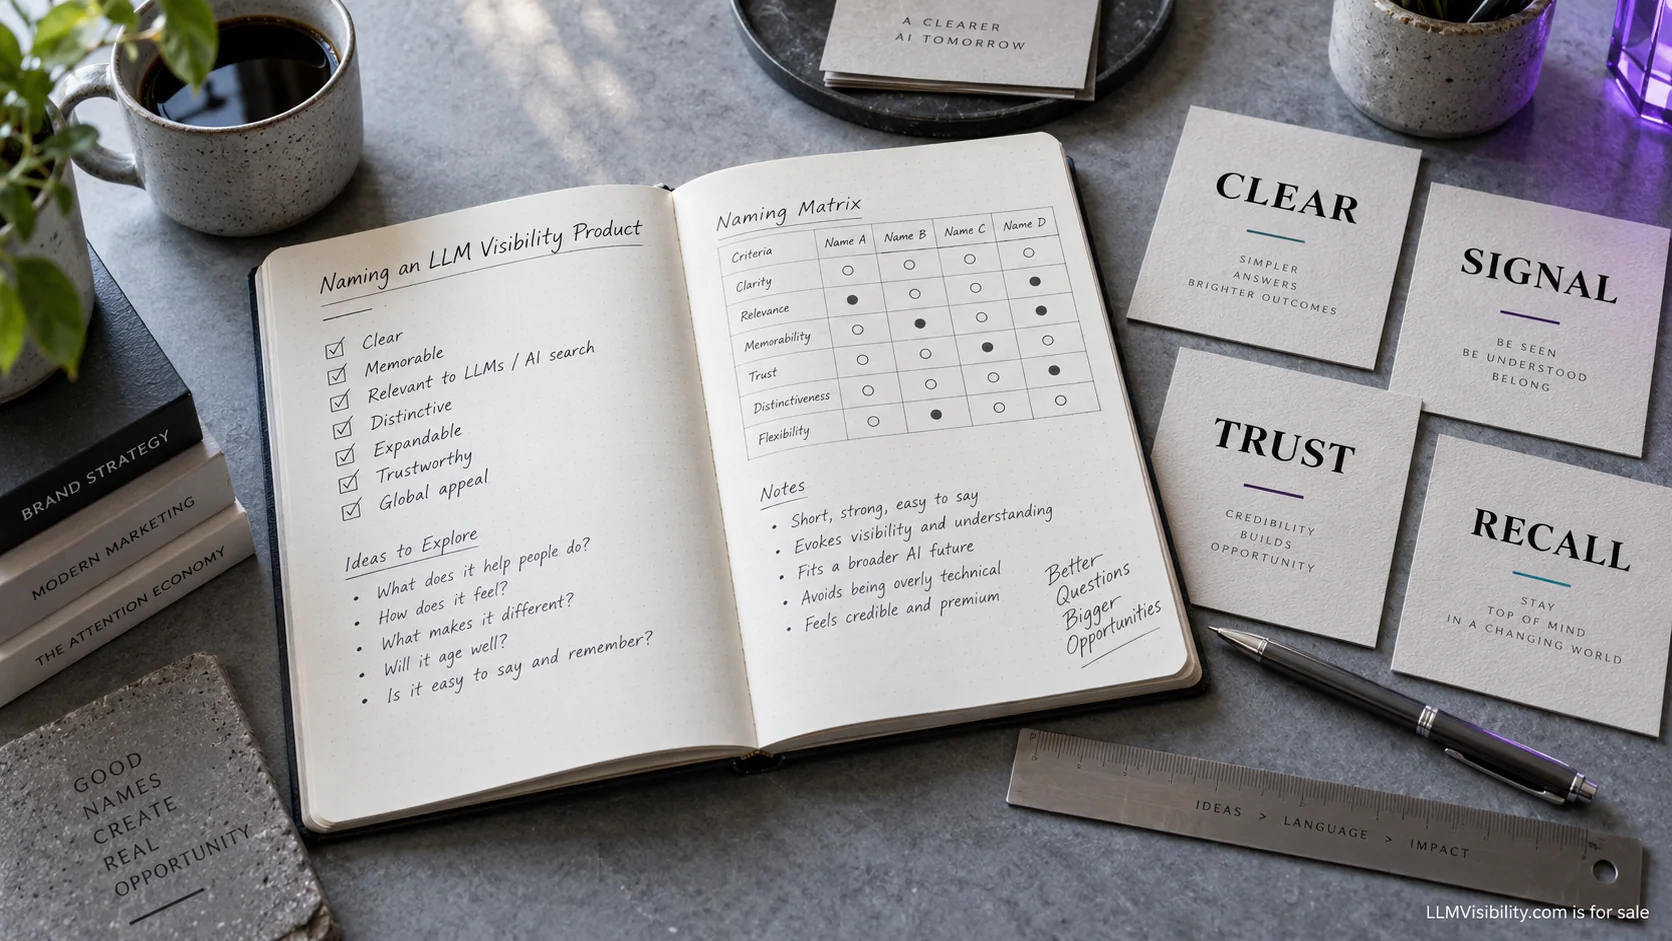 A CLEARER
AI TOMORROW
Naming an LLM Visibility Product
Clear
Memorable
Relevant to LLMs / AI search
Distinctive
Expandable
Trustworthy
Global appeal
Ideas to Explore
• What does it help people do?
• How does it feel?
• What makes it different?
• Will it age well?
• Is it easy to say and remember?
Naming Matrix
Criteria Name A Name B Name C Name D
Clarity
Relevance
Memorability
Trust
Distinctiveness
Flexibility
Notes
• Short, strong, easy to say
• Evokes visibility and understanding
• Fits a broader AI future
• Avoids being overly technical
• Feels credible and premium
Better
Questions
Bigger
Opportunities
CLEAR
SIMPLER
ANSWERS
BRIGHTER OUTCOMES
SIGNAL
BE SEEN
BE UNDERSTOOD
BELONG
TRUST
CREDIBILITY
BUILDS
OPPORTUNITY
RECALL
STAY
TOP OF MIND
IN A CHANGING WORLD
BRAND STRATEGY
MODERN MARKETING
THE ATTENTION ECONOMY
GOOD
NAMES
CREATE
REAL
OPPORTUNITY
IDEAS > LANGUAGE > IMPACT
LLMVisibility.com is for sale